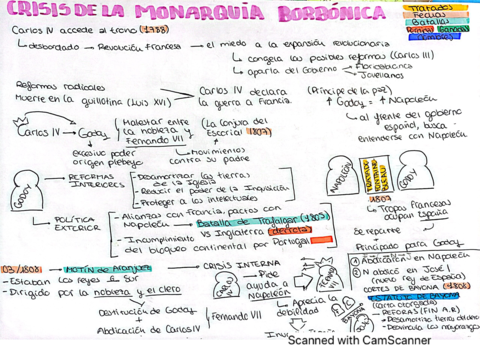 CRISIS DE LA MONARQUÍA BORBÓNICA
Tratados
Fechas
Batallas
Carlos IV accede al trono (1788)
↳ desbordado → Revolución francesa → el miedo a la expansión revolucionaria
↳ congela las posibles reformas (Carlos III)
↳ aparta del Gobierno → Floridablanca
↳ Jovellanos
Reformas radicales
Muerte en la guillotina (Luis XVI)
Carlos IV declara
la guerra a Francia.
(Príncipe de la paz)
↑ Godoy = ↑ Napoleón
↳ al frente del gobierno
español, busca
entenderse con Napoleón
Carlos IV → Godoy
Malestar entre
la nobleza y
Fernando VII
(La Conjura del
Escorial 1807)
↳ movimientos
contra su padre
↳ excesivo poder
origen plebeyo
GODOY
→ REFORMAS
INTERIORES
- Desamortizar las tierras
de la Iglesia
- Reducir el poder de la Inquisición
- Proteger a los intelectuales
↳ POLÍTICA
EXTERIOR
- Alianzas con Francia, pactos con
Napoleón → Batalla de Trafalgar (1805)
vs Inglaterra (derrota)
- Incumplimiento
del bloqueo continental por Portugal
NAPOLEÓN
TRATADO
FONTAINE
BLEAU
GODOY
1807
↳ Tropas francesas
ocupan España
Se reparte
Principado para Godoy
03/1808 → MOTÍN de Aranjuez
- Estaban los reyes
- Dirigido por la nobleza y el clero
CRISIS INTERNA
↳ Pide
ayuda a
Napoleón
↳ Aprecia la
debilidad
Destitución de Godoy
+
Abdicación de Carlos IV
Fernando VII
① Abdicación en Napoleón
② N abdicó en José I
(nuevo rey de España)
CORTES DE BAYONA (1808)
ESTATUTO DE BAYONA
(carta otorgada)
- REFORMAS (FIN A.R)
- Desamortiza
- Desvincula los mayorazgos
Scanned with CamScanner